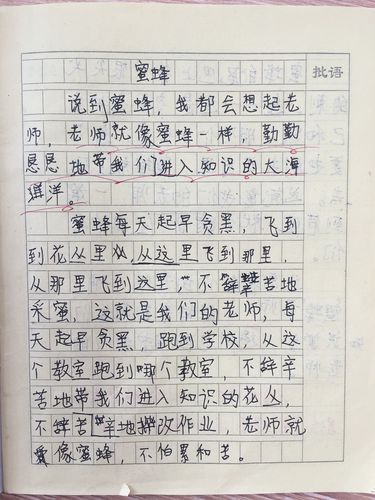 蜜蜂
批语
说到蜜蜂，我都会想起老
师，老师就像蜜蜂一样，勤勤
恳恳地带我们进入知识的大海
洋。
蜜蜂每天起早贪黑，飞到
到花丛里，从这里飞到那里，
从那里飞到这里，不辞辛苦地
采蜜，这就是我们的老师，每
天起早贪黑，跑到学校，从这
个教室跑到哪个教室，不辞辛
苦地带我们进入知识的花丛，
不辞苦辛地批改作业，老师就
像蜜蜂，不怕累和苦。